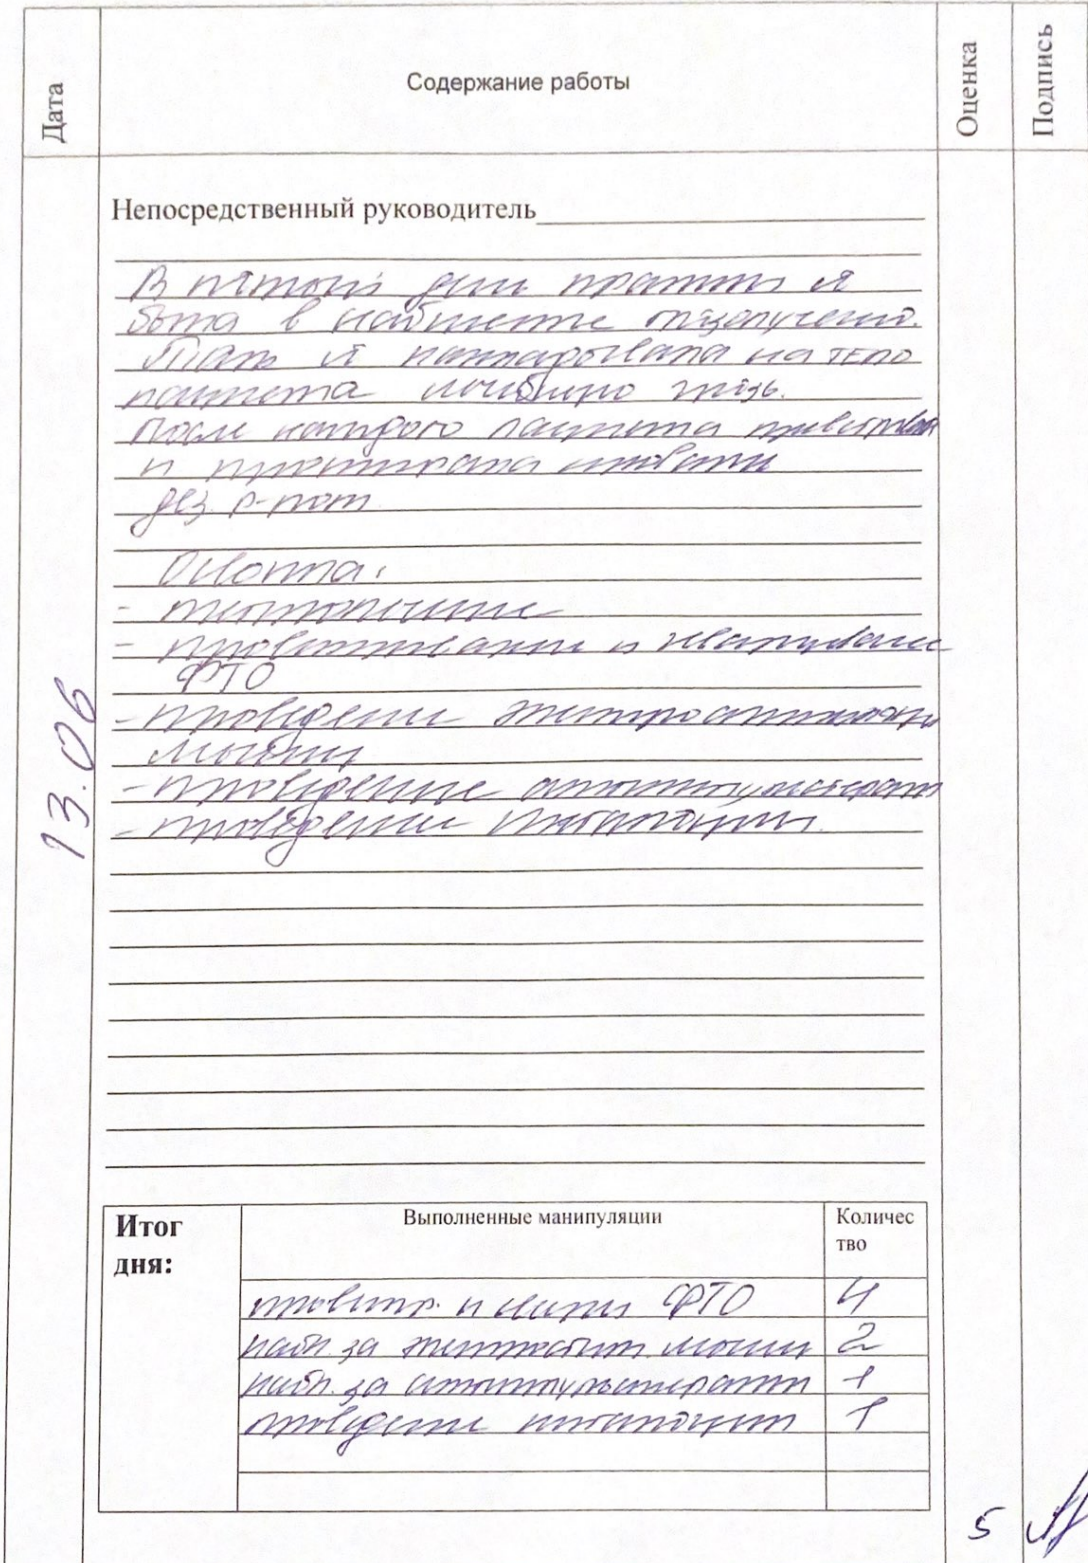 Дата
Содержание работы
Оценка
Подпись
Непосредственный руководитель
В пятый день практики я
была в кабинете
Там я на тело
пациента грязь.
После каждого пациента
и протирала кровати
дез. р-ром
Освоила:
-
- проветривание и кварцевание
ФТО
- проведение электростимуляции
мышц
- проведение амплипульстерапии
- проведение ингаляции.
13.06
Итог
дня:
Выполненные манипуляции
Количес
тво
проветр. и ФТО 4
набл. за мышц 2
набл. за амплипульстерапии 1
проведение ингаляции 1
5